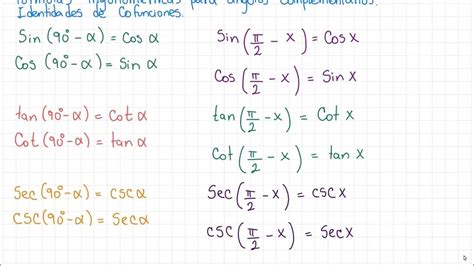 Fórmulas Trigonométricas para ángulos Complementarios.
Identidades de Cofunciones.
Sin (90° - α) = Cos α
Cos (90° - α) = Sin α
tan (90° - α) = Cot α
Cot (90° - α) = tan α
Sec (90° - α) = CSC α
CSC (90° - α) = Sec α
Sin (π/2 - x) = Cos x
Cos (π/2 - x) = Sin x
tan (π/2 - x) = Cot x
Cot (π/2 - x) = tan x
Sec (π/2 - x) = CSC x
CSC (π/2 - x) = Sec x